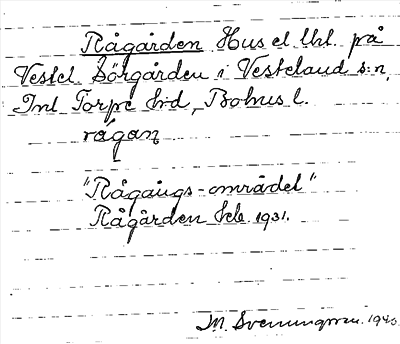 Rågården Hus el lht. på
Vestel. Sörgården i Vesteland s:n,
Inl Torpe h:d, Bohus l.
rågan
"Rågångs-området"
Rågården 1931.
M. Svenungsson. 1940